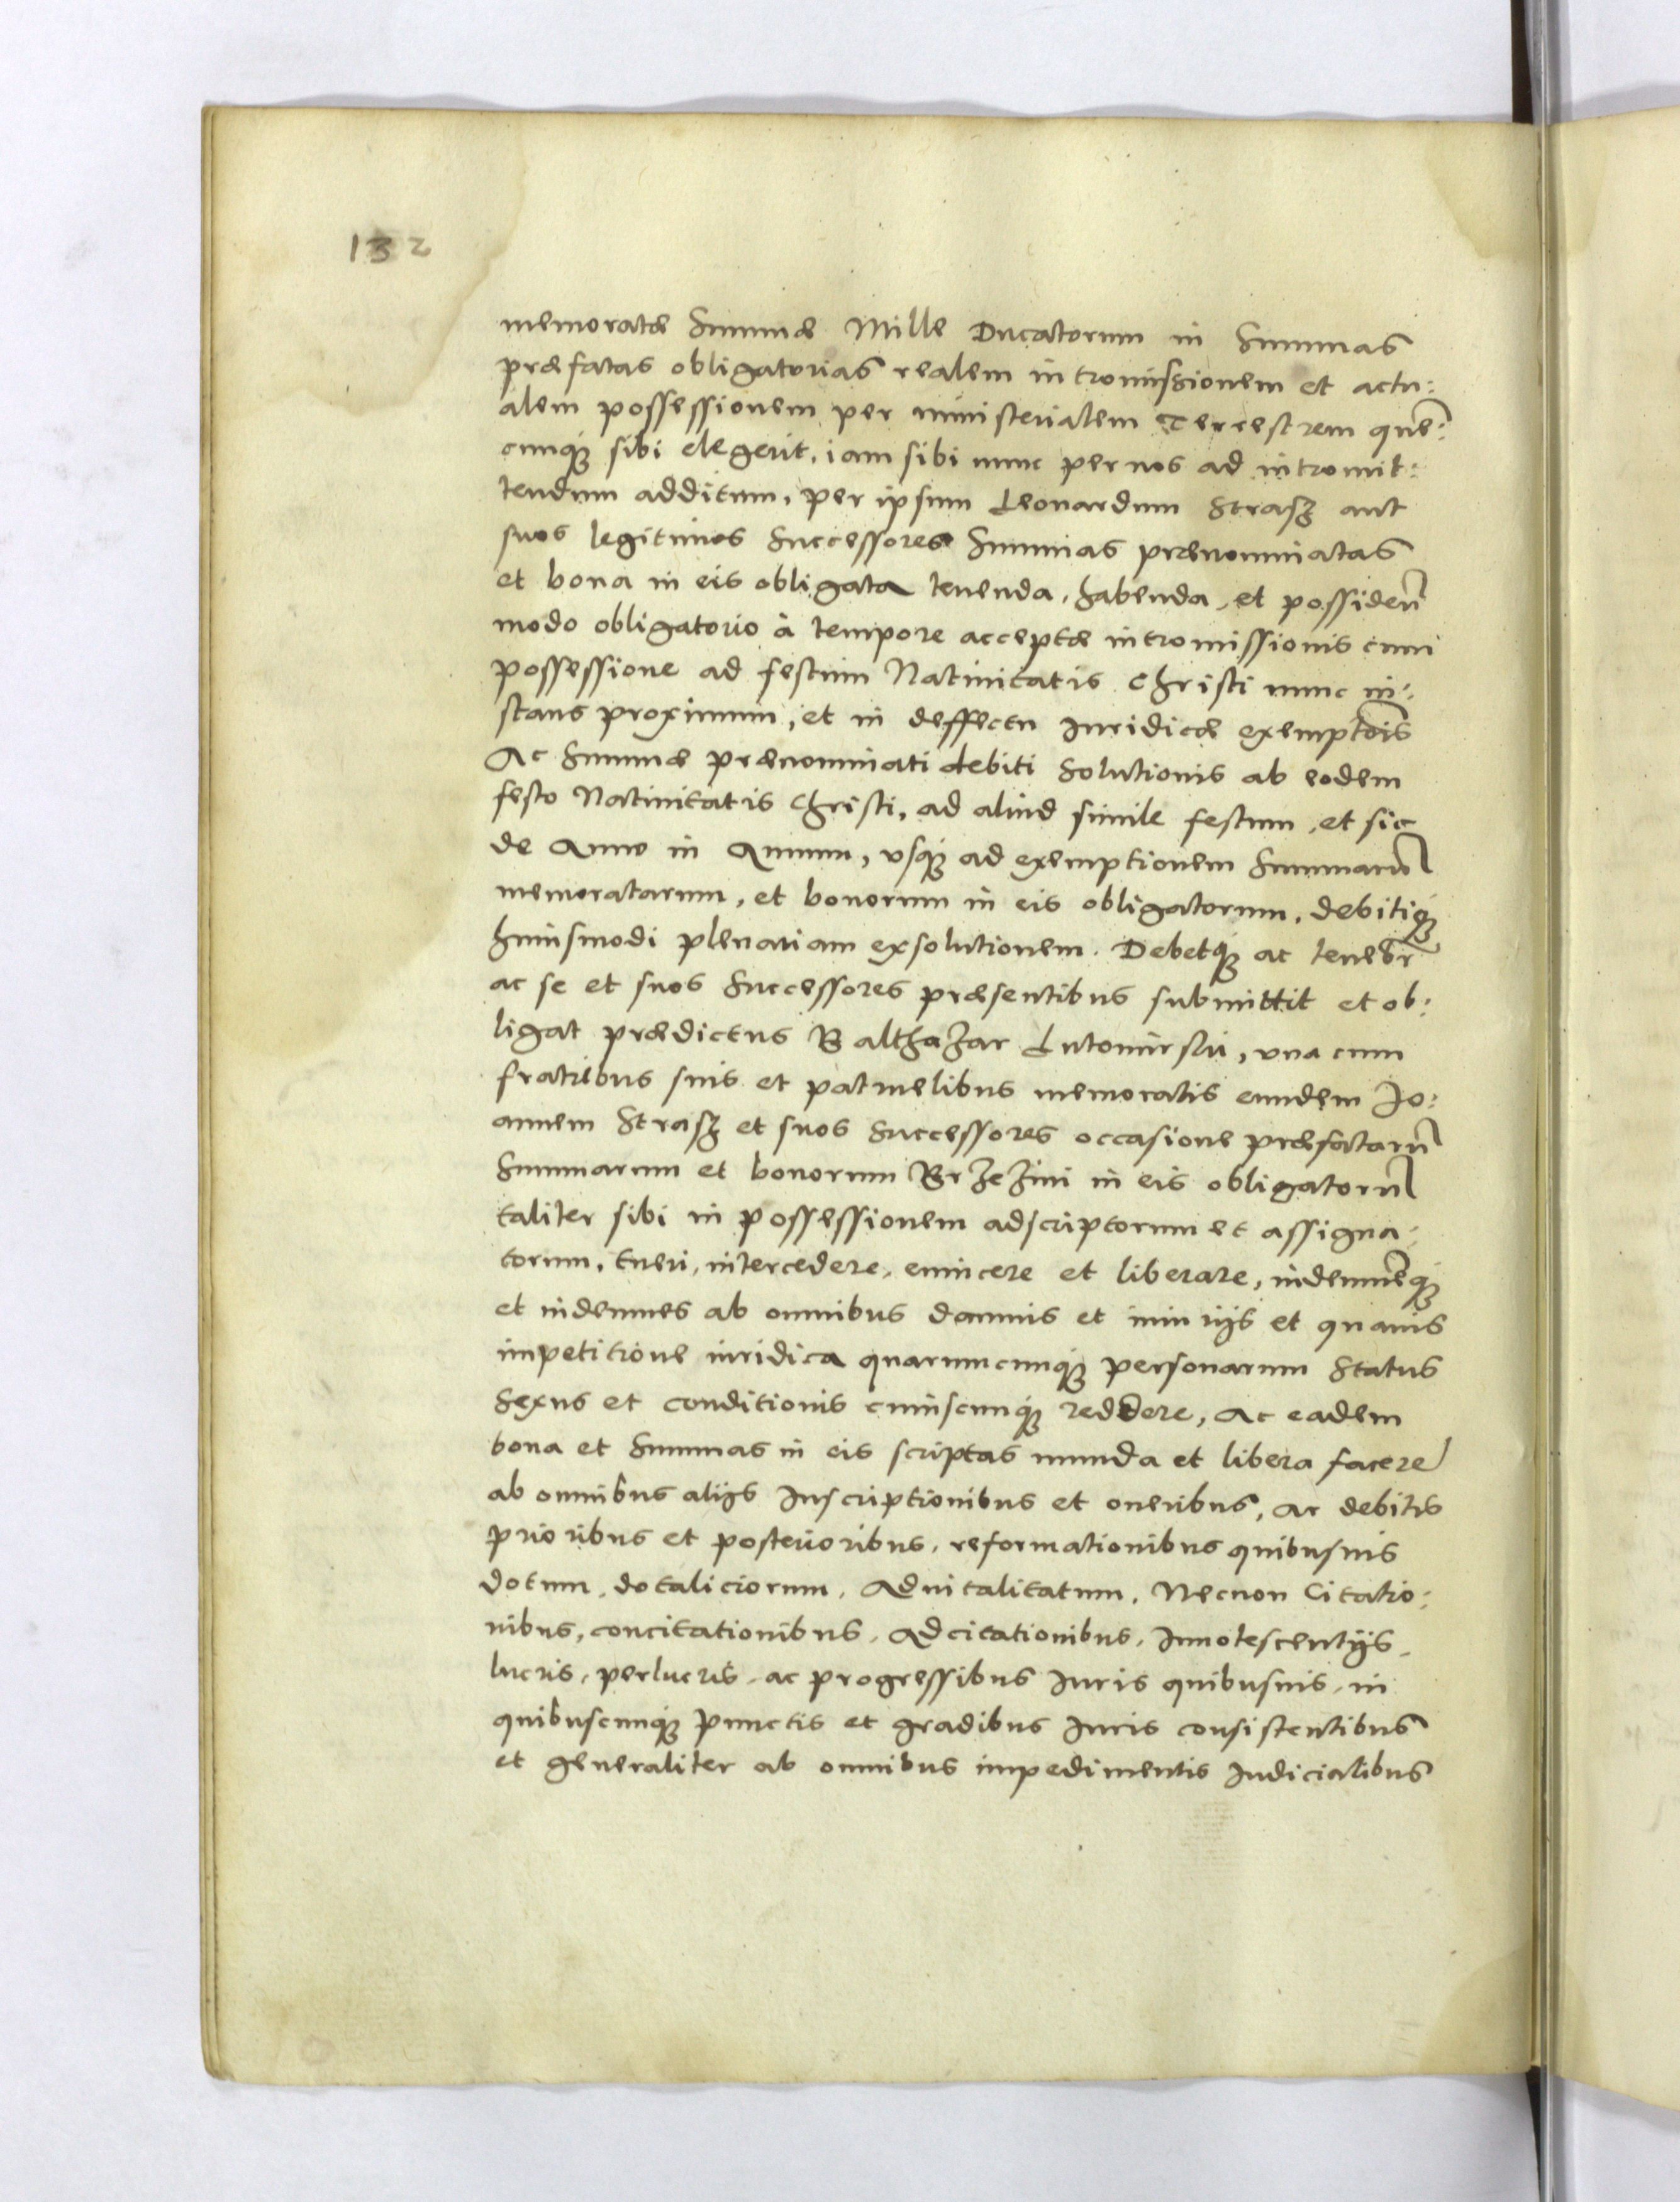 132
memoratæ Summæ Mille Ducatorum in Summas
præfatas obligatorias realem intromissionem et actu:
alem possessionem per ministerialem Terrestrem quē:
cunq3 sibi elegerit, iam sibi nunc per nos ad intromit:
tendum additum, per ipsum Leonardum Strasz aut
suos legitimos Successores Summas prænominatas
et bona in eis obligata tenenda, habenda, et possideñ
modo obligatorio à tempore acceptæ intromissionis cum
possessione ad festum Natiuitatis Christi nunc in:
stans proximum, et in deffectu Iuridicæ exemptōis
Ac Summæ prænominati debiti Solutionis ab eodem
festo Natiuitatis Christi, ad aliud simile festum, et sic
de Anno in Annum, vsq3 ad exemptionem Summarū
memoratarum, et bonorum in eis obligatorum, debitiq3
huiusmodi plenariam exsolutionem. Debetq3 ac tenebr̃
ac se et suos Successores præsentibus submittit et ob:
ligat prædictus Balthazar Lutomirski, vna cum
fratribus suis et patruelibus memoratis eundem Io:
annem Strasz et suos Successores occasione præfatarū
Summarum et bonorum Brzezini in eis obligatorū
taliter sibi in possessionem adscriptorum et assigna:
torum, tueri, intercedere, euincere et liberare, indemnēq3
et indemnes ab omnibus damnis et iniurijs et quauis
impetitione iuridica quarumcunq3 personarum Status
Sexus et conditionis cuiuscunq3 reddere, Ac eadem
bona et Summas in eis scriptas munda et libera facere
ab omnibus alijs Inscriptionibus et oneribus, Ac debitis
prioribus et posterioribus, reformationibus quibusuis
dotum, dotaliciorum, Aduitalitatum, Necnon Citatio:
nibus, concitationibus, Adcitationibus, Innotescentijs,
lucris, perlucris, ac progressibus Iuris quibusuis, in
quibuscunq3 punctis et gradibus Iuris consistentibus
et generaliter ab omnibus impedimentis Iudicialibus